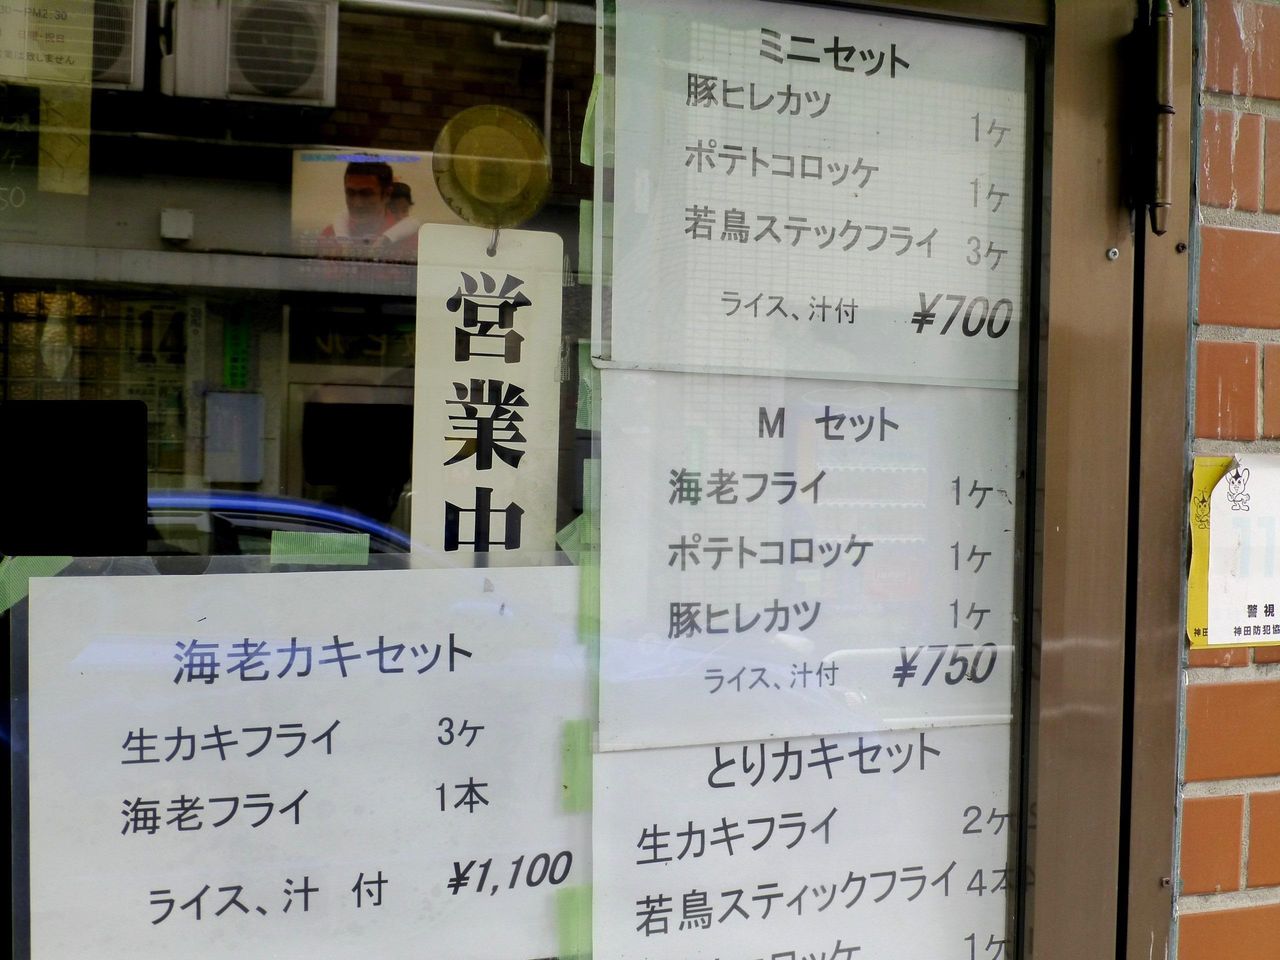 ミニセット
豚ヒレカツ 1ケ
ポテトコロッケ 1ケ
若鳥ステックフライ 3ケ
ライス、汁付 ¥700
M セット
海老フライ 1ケ
ポテトコロッケ 1ケ
豚ヒレカツ 1ケ
ライス、汁付 ¥750
とりカキセット
生カキフライ 2ケ
若鳥スティックフライ 4本
コロッケ 1ケ
営業中
海老カキセット
生カキフライ 3ケ
海老フライ 1本
ライス、汁 付 ¥1,100
PM2:30
14
50
110
警視
神田防犯協
神田